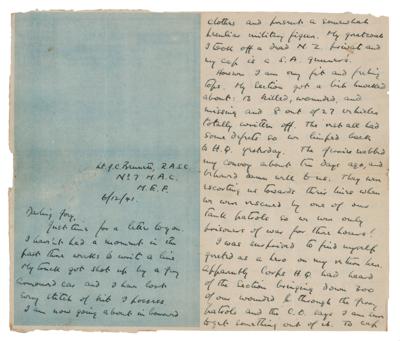 Lt. J.C. Bennett, R.A.S.C.
No 7 M.A.C.
M.E.F.
6/12/41.
Darling Joy,
Just time for a letter to you.
I haven't had a moment in the
past three weeks to write a line
My truck got shot up by a Jerry
armoured car and I have lost
every stitch of kit I possess
I am now going about in borrowed
clothes and present a somewhat
peculiar military figure. My greatcoat
I took off a dead N.Z. private and
my cap is a S.A. gunners.
However I am very fit and feeling
tops. My section got a bit knocked
about: 13 killed, wounded, and
missing and 8 out of 27 vehicles
totally written off. The rest all had
some defects so we limped back
to H.Q. yesterday. The Jerries nabbed
my convoy about ten days ago, and
behaved damn well to us. They were
escorting us towards their lines when
we were rescued by one of our
tank patrols so we were only
prisoners of war for three hours!
I was surprised to find myself
greeted as a hero on my return here.
Apparently Corps H.Q. had heard
of the section bringing down 300
of our wounded through the Jerry
patrols and the C.O. says I am sure
to get something out of it. To cap